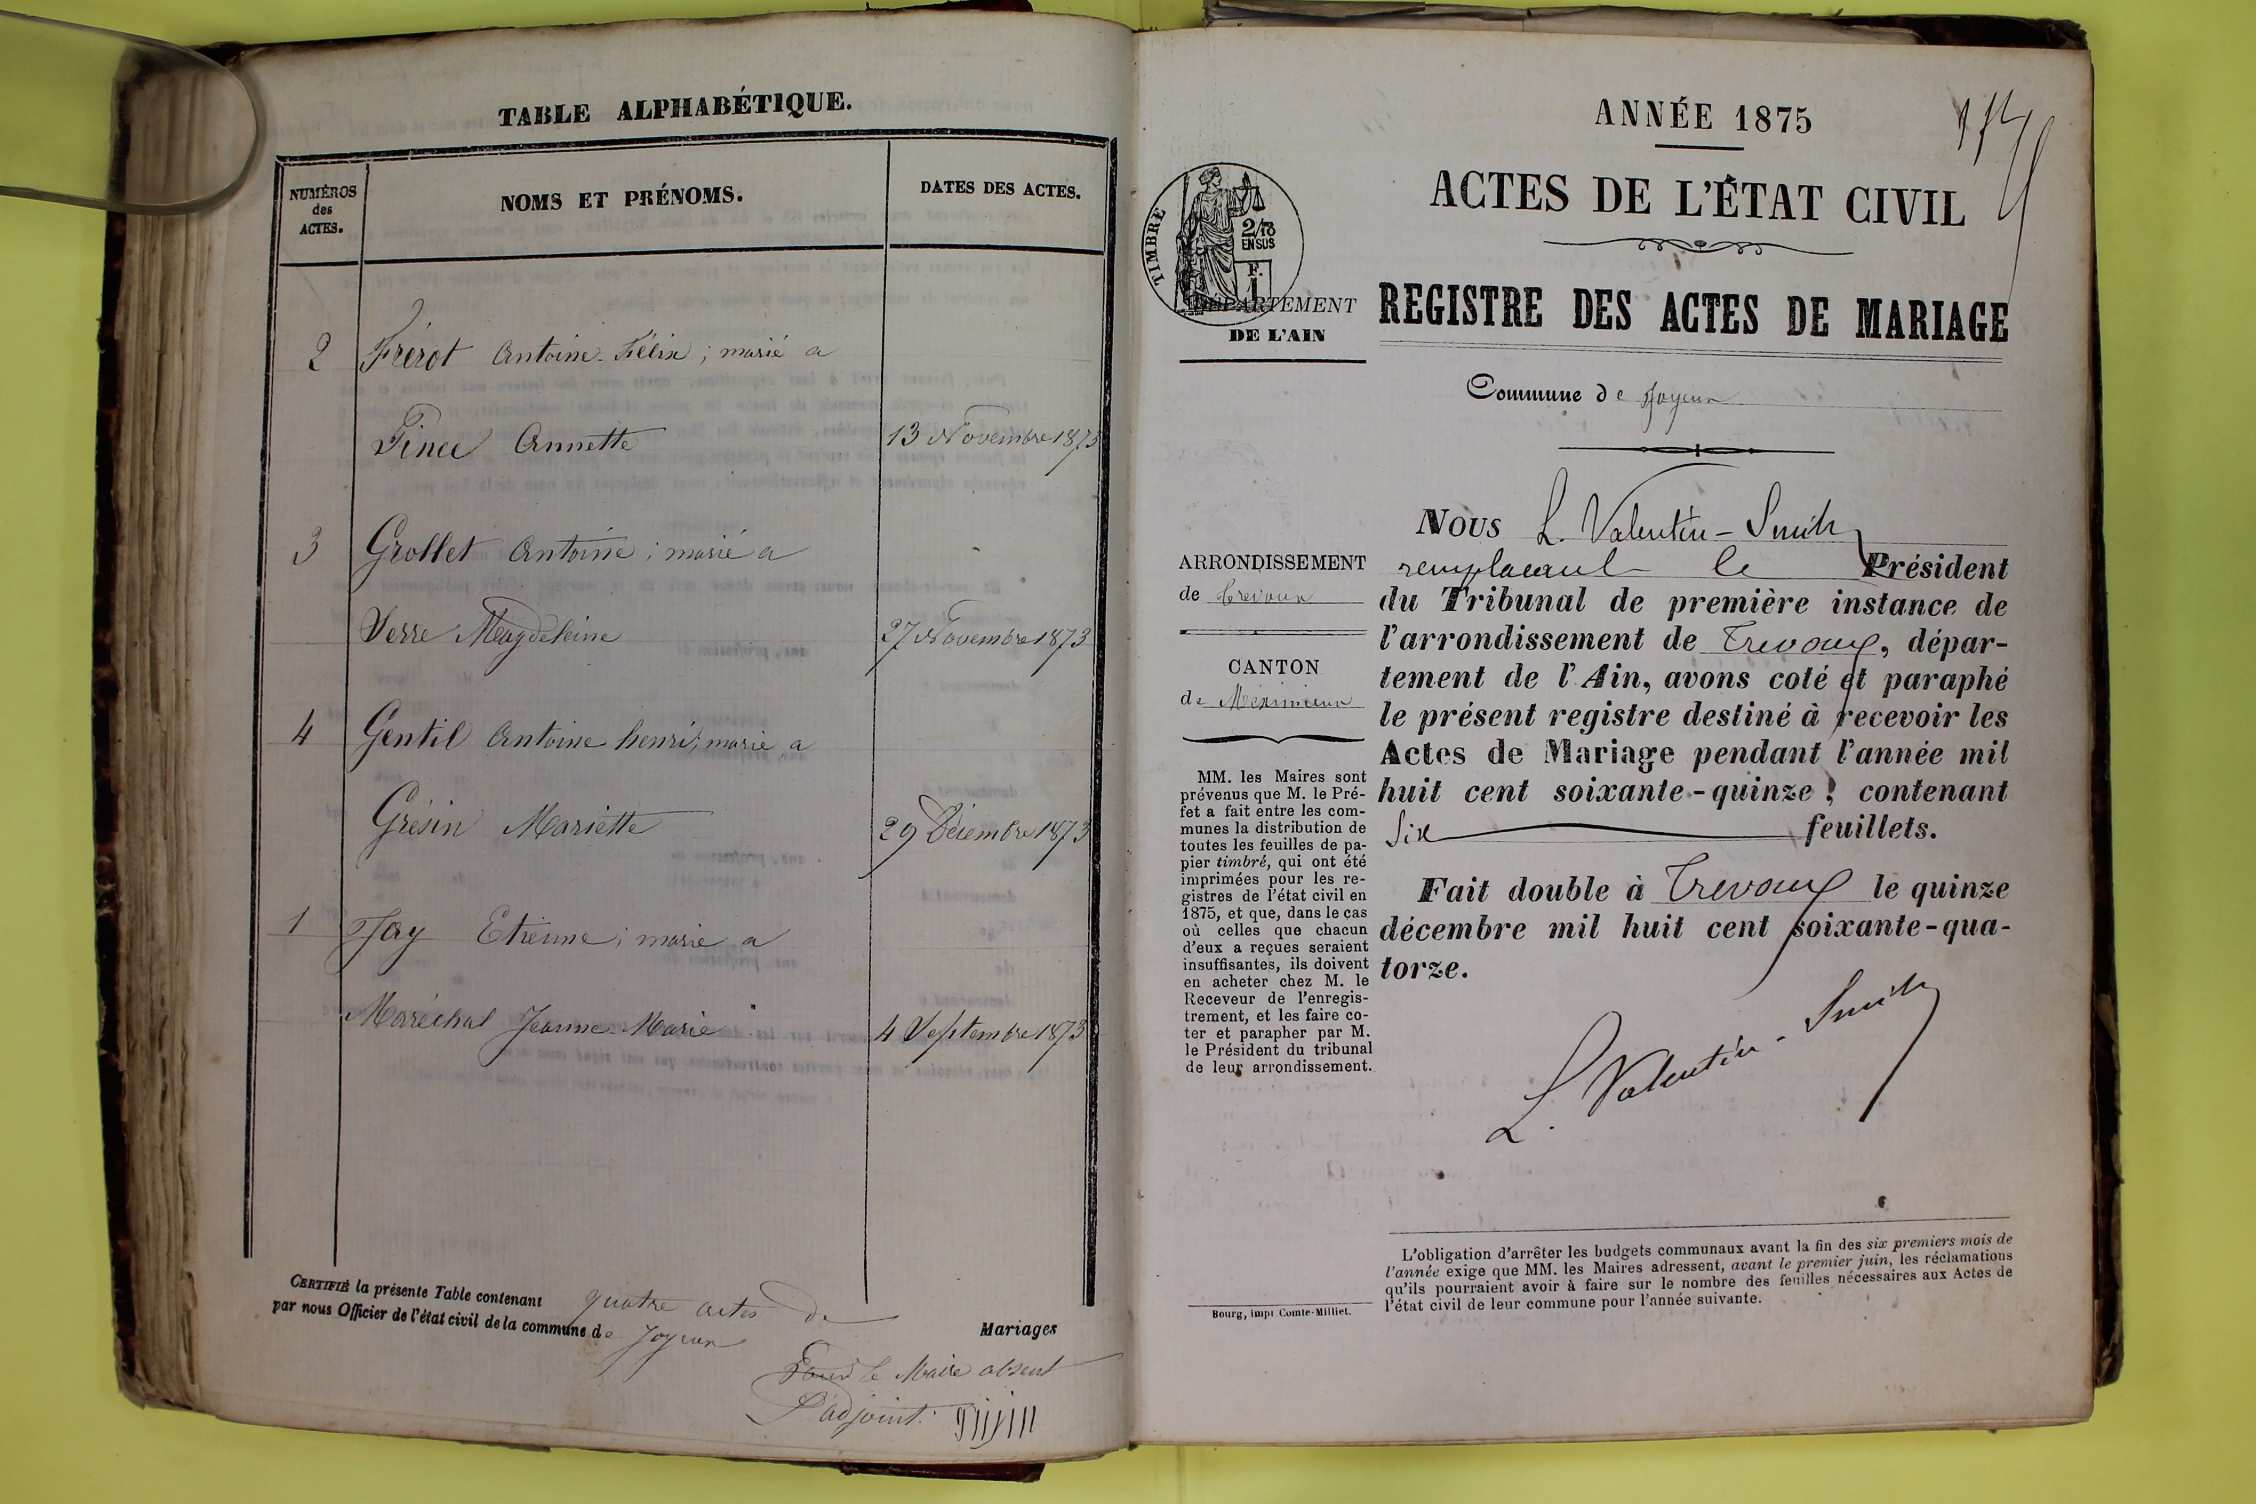 TABLE ALPHABÉTIQUE.
NUMÉROS
des
ACTES.
NOMS ET PRÉNOMS.
DATES DES ACTES.
2 Frérot Antoine-Félix; marié a
Annette 13 Novembre 1873
3 Grollet Antoine; marié a
Verre Magdeleine 27 Novembre 1873
4 Gentil Antoine henri; marié a
Grésin Mariette 29 Décembre 1873
1 Jay Etienne; marié a
Maréchal Jeanne-Marie 4 Septembre 1873
CERTIFIÉ la présente Table contenant quatre actes de
Mariages
par nous Officier de l'état civil de la commune de Joyeux
le Maire absent
L'adjoint.
ANNÉE 1875
ACTES DE L'ÉTAT CIVIL
TIMBRE
2/10
EN SUS
F.
1
DÉPARTEMENT
DE L'AIN
REGISTRE DES ACTES DE MARIAGE
Commune de Joyeux
ARRONDISSEMENT
de Trevoux
CANTON
de Méximieux
MM. les Maires sont
prévenus que M. le Pré-
fet a fait entre les com-
munes la distribution de
toutes les feuilles de pa-
pier timbré, qui ont été
imprimées pour les re-
gistres de l'état civil en
1875, et que, dans le cas
où celles que chacun
d'eux a reçues seraient
insuffisantes, ils doivent
en acheter chez M. le
Receveur de l'enregis-
trement, et les faire co-
ter et parapher par M.
le Président du tribunal
de leur arrondissement.
Bourg, impr Comte-Milliet.
NOUS L. Valentin-Smith
remplacant le Président
du Tribunal de première instance de
l'arrondissement de Trevoux, dépar-
tement de l'Ain, avons coté et paraphé
le présent registre destiné à recevoir les
Actes de Mariage pendant l'année mil
huit cent soixante-quinze, contenant
Six feuillets.
Fait double à Trevoux le quinze
décembre mil huit cent soixante-qua-
torze.
L. Valentin-Smith
L'obligation d'arrêter les budgets communaux avant la fin des six premiers mois de
l'année exige que MM. les Maires adressent, avant le premier juin, les réclamations
qu'ils pourraient avoir à faire sur le nombre des feuilles nécessaires aux Actes de
l'état civil de leur commune pour l'année suivante.